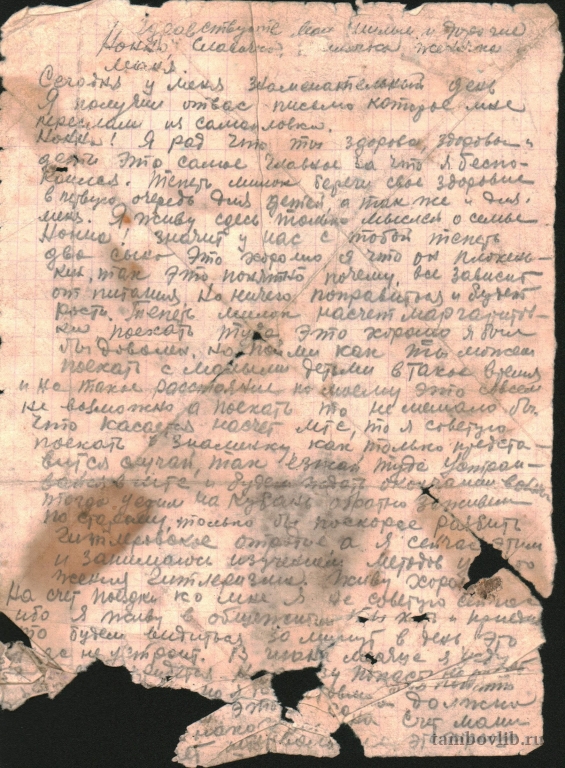 Здравствуйте, мои милые и дорогие
Нонна Славочка и
Сегодня у меня знаменательный день
Я получил от вас письмо которое мне
переслали из самойловки.
Нонна! Я рад что ты здорова, здоровы и
дети это самое главное за что я беспо-
коился. Теперь милок береги свое здоровие
в первую очередь для детей а так же и для
меня. Я живу сдесь только мыслей о семье
Нонна! значит у нас с тобой теперь
два сына это хорошо, а что он плохень-
кий, так это понятно почему, все зависит
от питания, но ничего поправиться и будет
рости. Теперь милок насчет маргаритов-
ки поехать туда это хорошо я был
бы доволен, но пойми как ты можеш
поехать с малыми детьми в такое время
и на такое расстояние по моему это совсем
не возможно а поехать то не мешало бы.
Что касается насчет мтс, то я советую
поехать в Знаменку, как только предста-
вится случай, так езжай туда устраи-
вайся и будем ждать окончания войны
тогда уедим на Кубань обратно заживем
по старому, только бы поскорее разбить
Гитлеровское отродие а я сейчас этим
и занимаюсь изучением методов
жения гитлеризма. Живу хорошо
На счет поездки ко мне я не советую
ибо я живу в общежитии и
то будем видиться 30 минут в день это
нас не устроит. В июне месяце я
должна
счет мами
tambovlib.ru